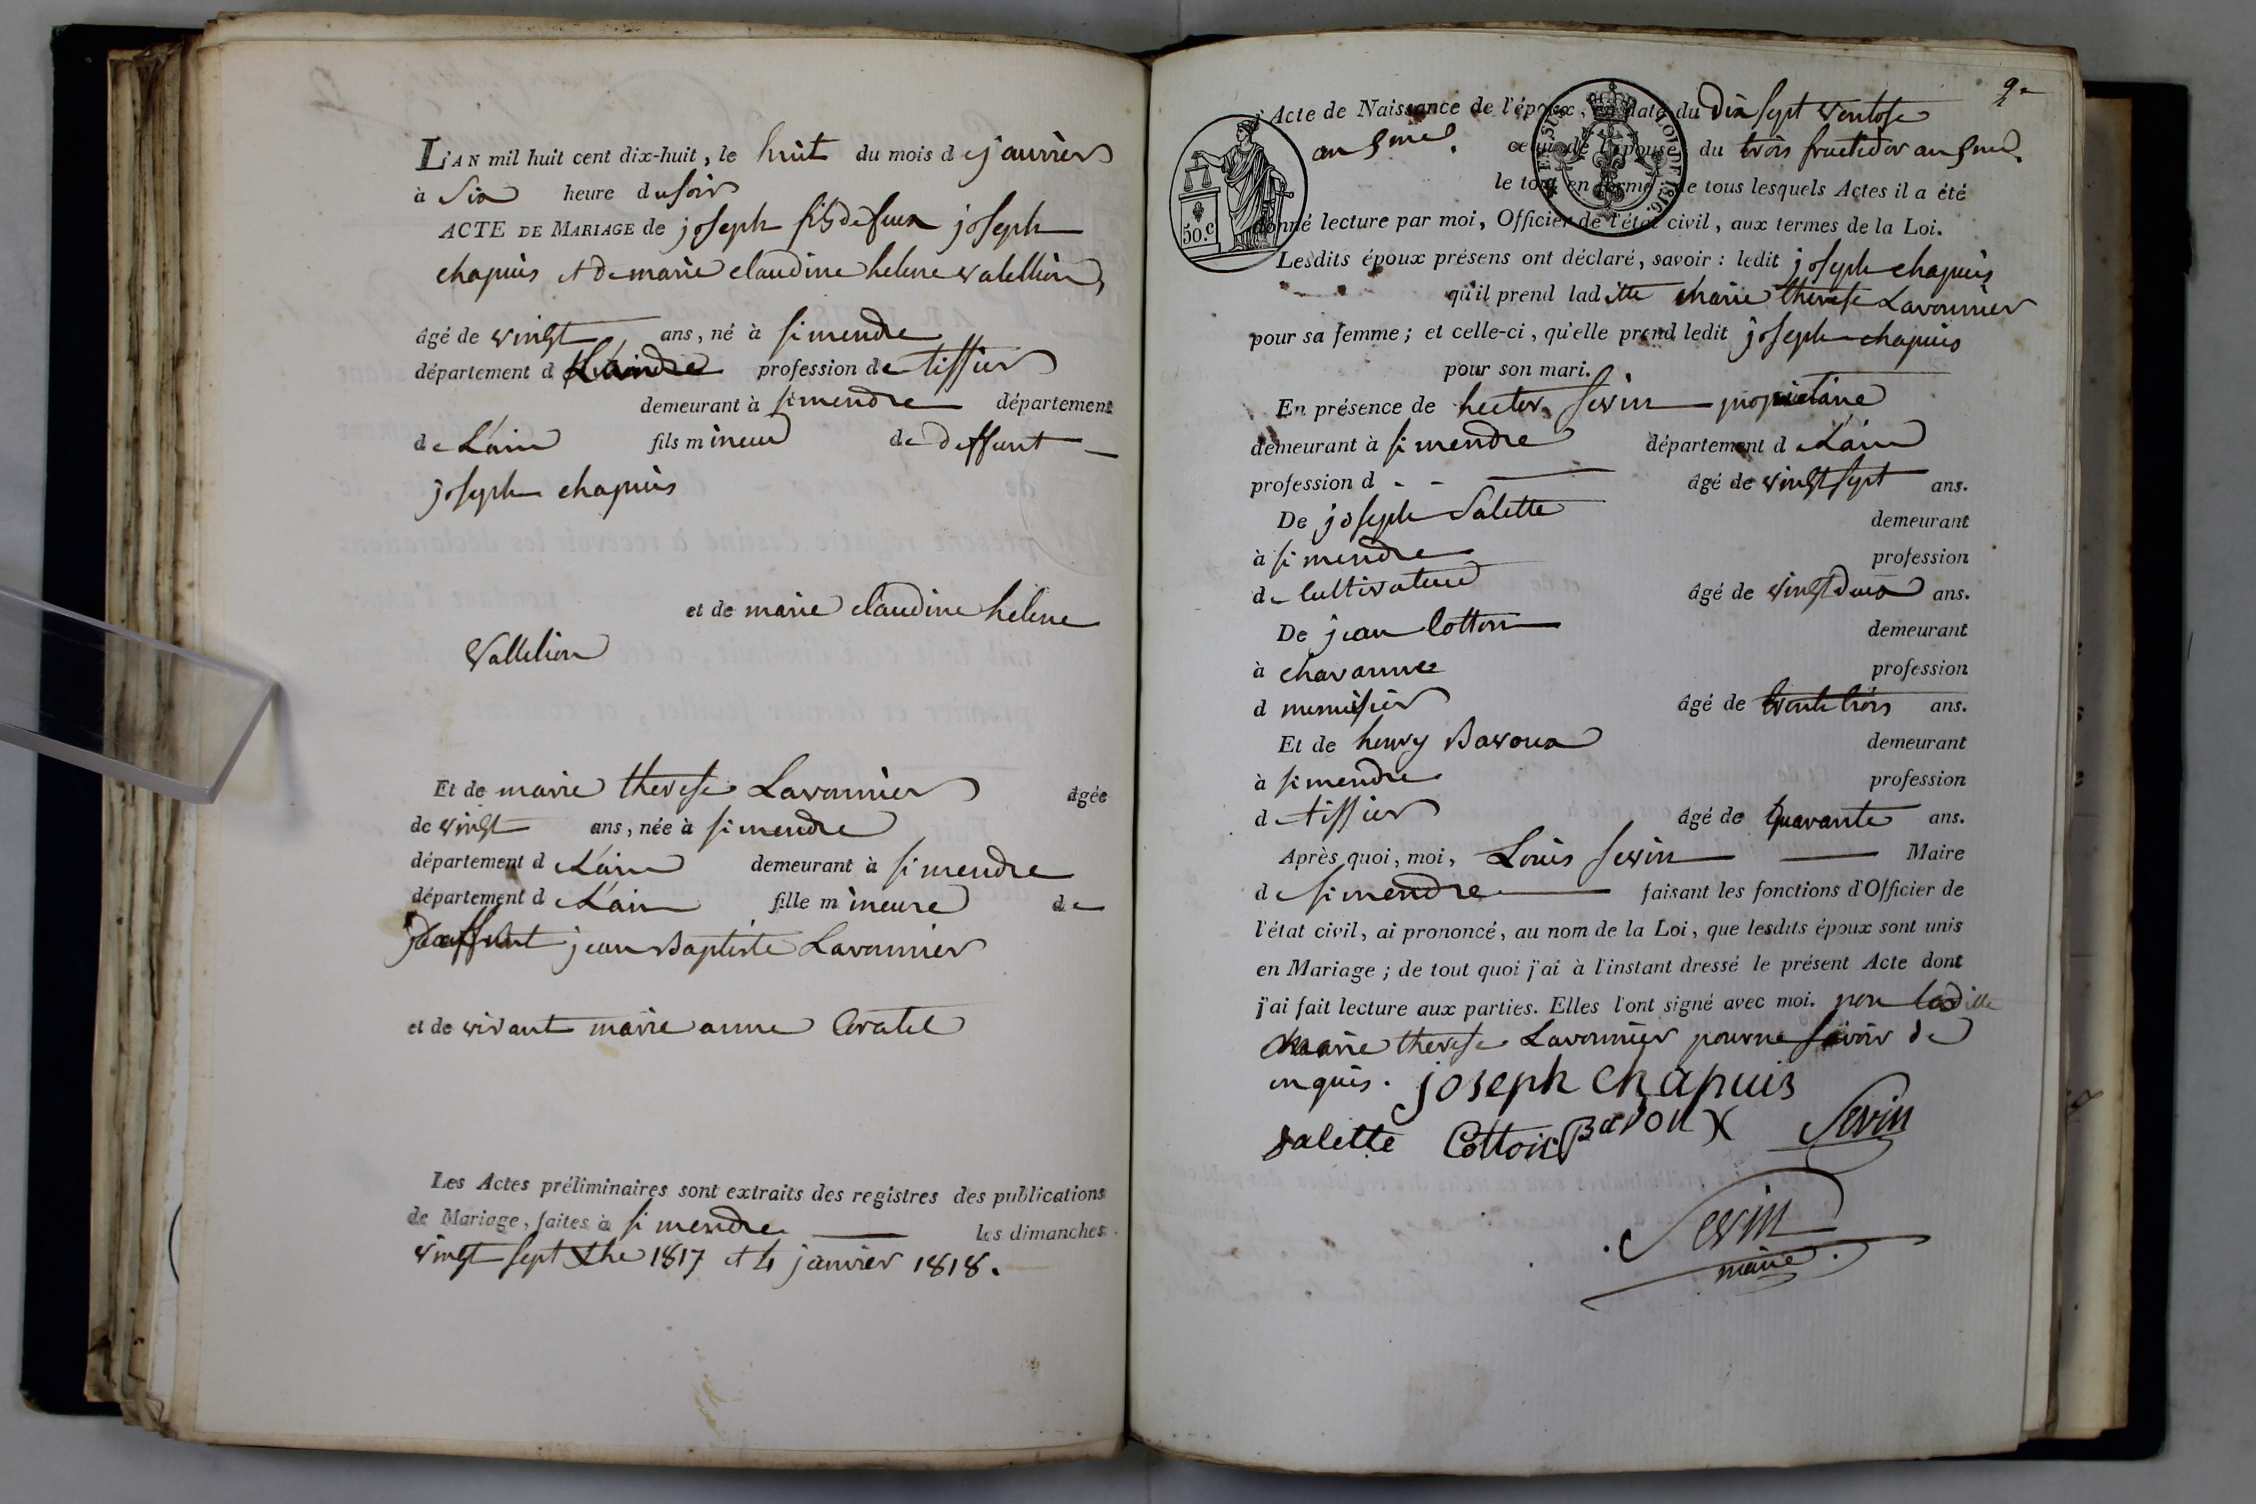 L'AN mil huit cent dix-huit, le huit du mois de janvier
à Six heure du soir
ACTE DE MARIAGE de joseph fils de feux joseph
chapuis et de marie claudine helene valellion,
âgé de vingt ans, né à simendre
département d profession de tissier
demeurant à simendre département
de L'ain fils mineur de deffunt
joseph chapuis
et de marie claudine helene
Vallelion
Et de marie therese Lavonnier âgée
de vingt ans, née à simendre
département de L'ain demeurant à simendre
département de L'ain fille mineure de
jean Baptiste Lavonnier
et de vivant marie anne
Les Actes préliminaires sont extraits des registres des publications
de Mariage, faites à simendre les dimanches
vingt sept Xbre 1817 et 4 janvier 1818.
2
l'Acte de Naissance de l'époux, en date du dix sept ventose
an 5me. celui de l'épouse du trois fructidor an 5me.
le tout en forme; de tous lesquels Actes il a été
donné lecture par moi, Officier de l'état civil, aux termes de la Loi.
50.c
TIMBRE LOI DE 1816.
Lesdits époux présens ont déclaré, savoir : ledit joseph chapuis
qu'il prend ladite marie therese Lavonnier
pour sa femme; et celle-ci, qu'elle prend ledit joseph chapuis
pour son mari.
En présence de hector Sevin propriétaire
demeurant à simendre département de L'ain
profession d âgé de vingt sept ans.
De joseph Salette demeurant
à simendre profession
de Cultivateur âgé de vingt deux ans.
De jean Cotton demeurant
à chavanne profession
d menuisier âgé de trente trois ans.
Et de henry Bavoux demeurant
à simendre profession
d tissier âgé de quarante ans.
Après quoi, moi, Louis Sevin Maire
de simendre faisant les fonctions d'Officier de
l'état civil, ai prononcé, au nom de la Loi, que lesdits époux sont unis
en Mariage; de tout quoi j'ai à l'instant dressé le présent Acte dont
j'ai fait lecture aux parties. Elles l'ont signé avec moi. non ladille
marie therese Lavonnier pour ne savoir de
en quis. joseph chapuis
Salette Cotton Bavoux Sevin
Sevin
maire